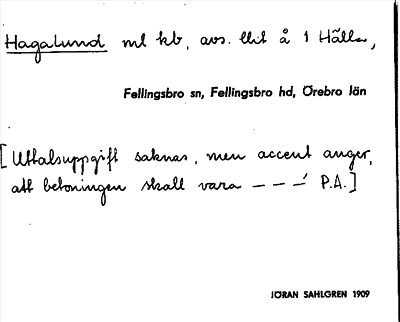 Hagalund ml kb, avs. till å 1 Hälla,
Fellingsbro sn, Fellingsbro hd, Örebro län
[Uttalsuppgift saknas, men accent anger,
att betoningen skall vara – – –́ P.A.]
JÖRAN SAHLGREN 1909